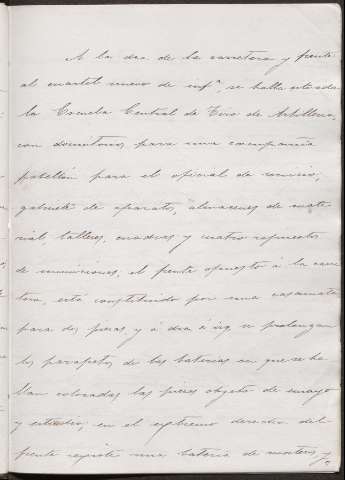 A la dra. de la carretera y frente
al cuartel nuevo de infª, se halla
la Escuela Central de Tiro de Artillería,
con dormitorios para una compañía
pabellón para el oficial de servicio,
gabinete de aparatos, almacenes de mate-
rial, talleres, cuadras y cuatro repuestos
de municiones; el frente opuesto á la carre-
tera, está constituido por una casamata
para dos piezas y á dra é izq se prolongan
los parapetos de las baterías en que se ha-
llan colocadas las piezas objeto de ensayo
y estudio, en el extremo derecho del
frente existe una batería de morteros y